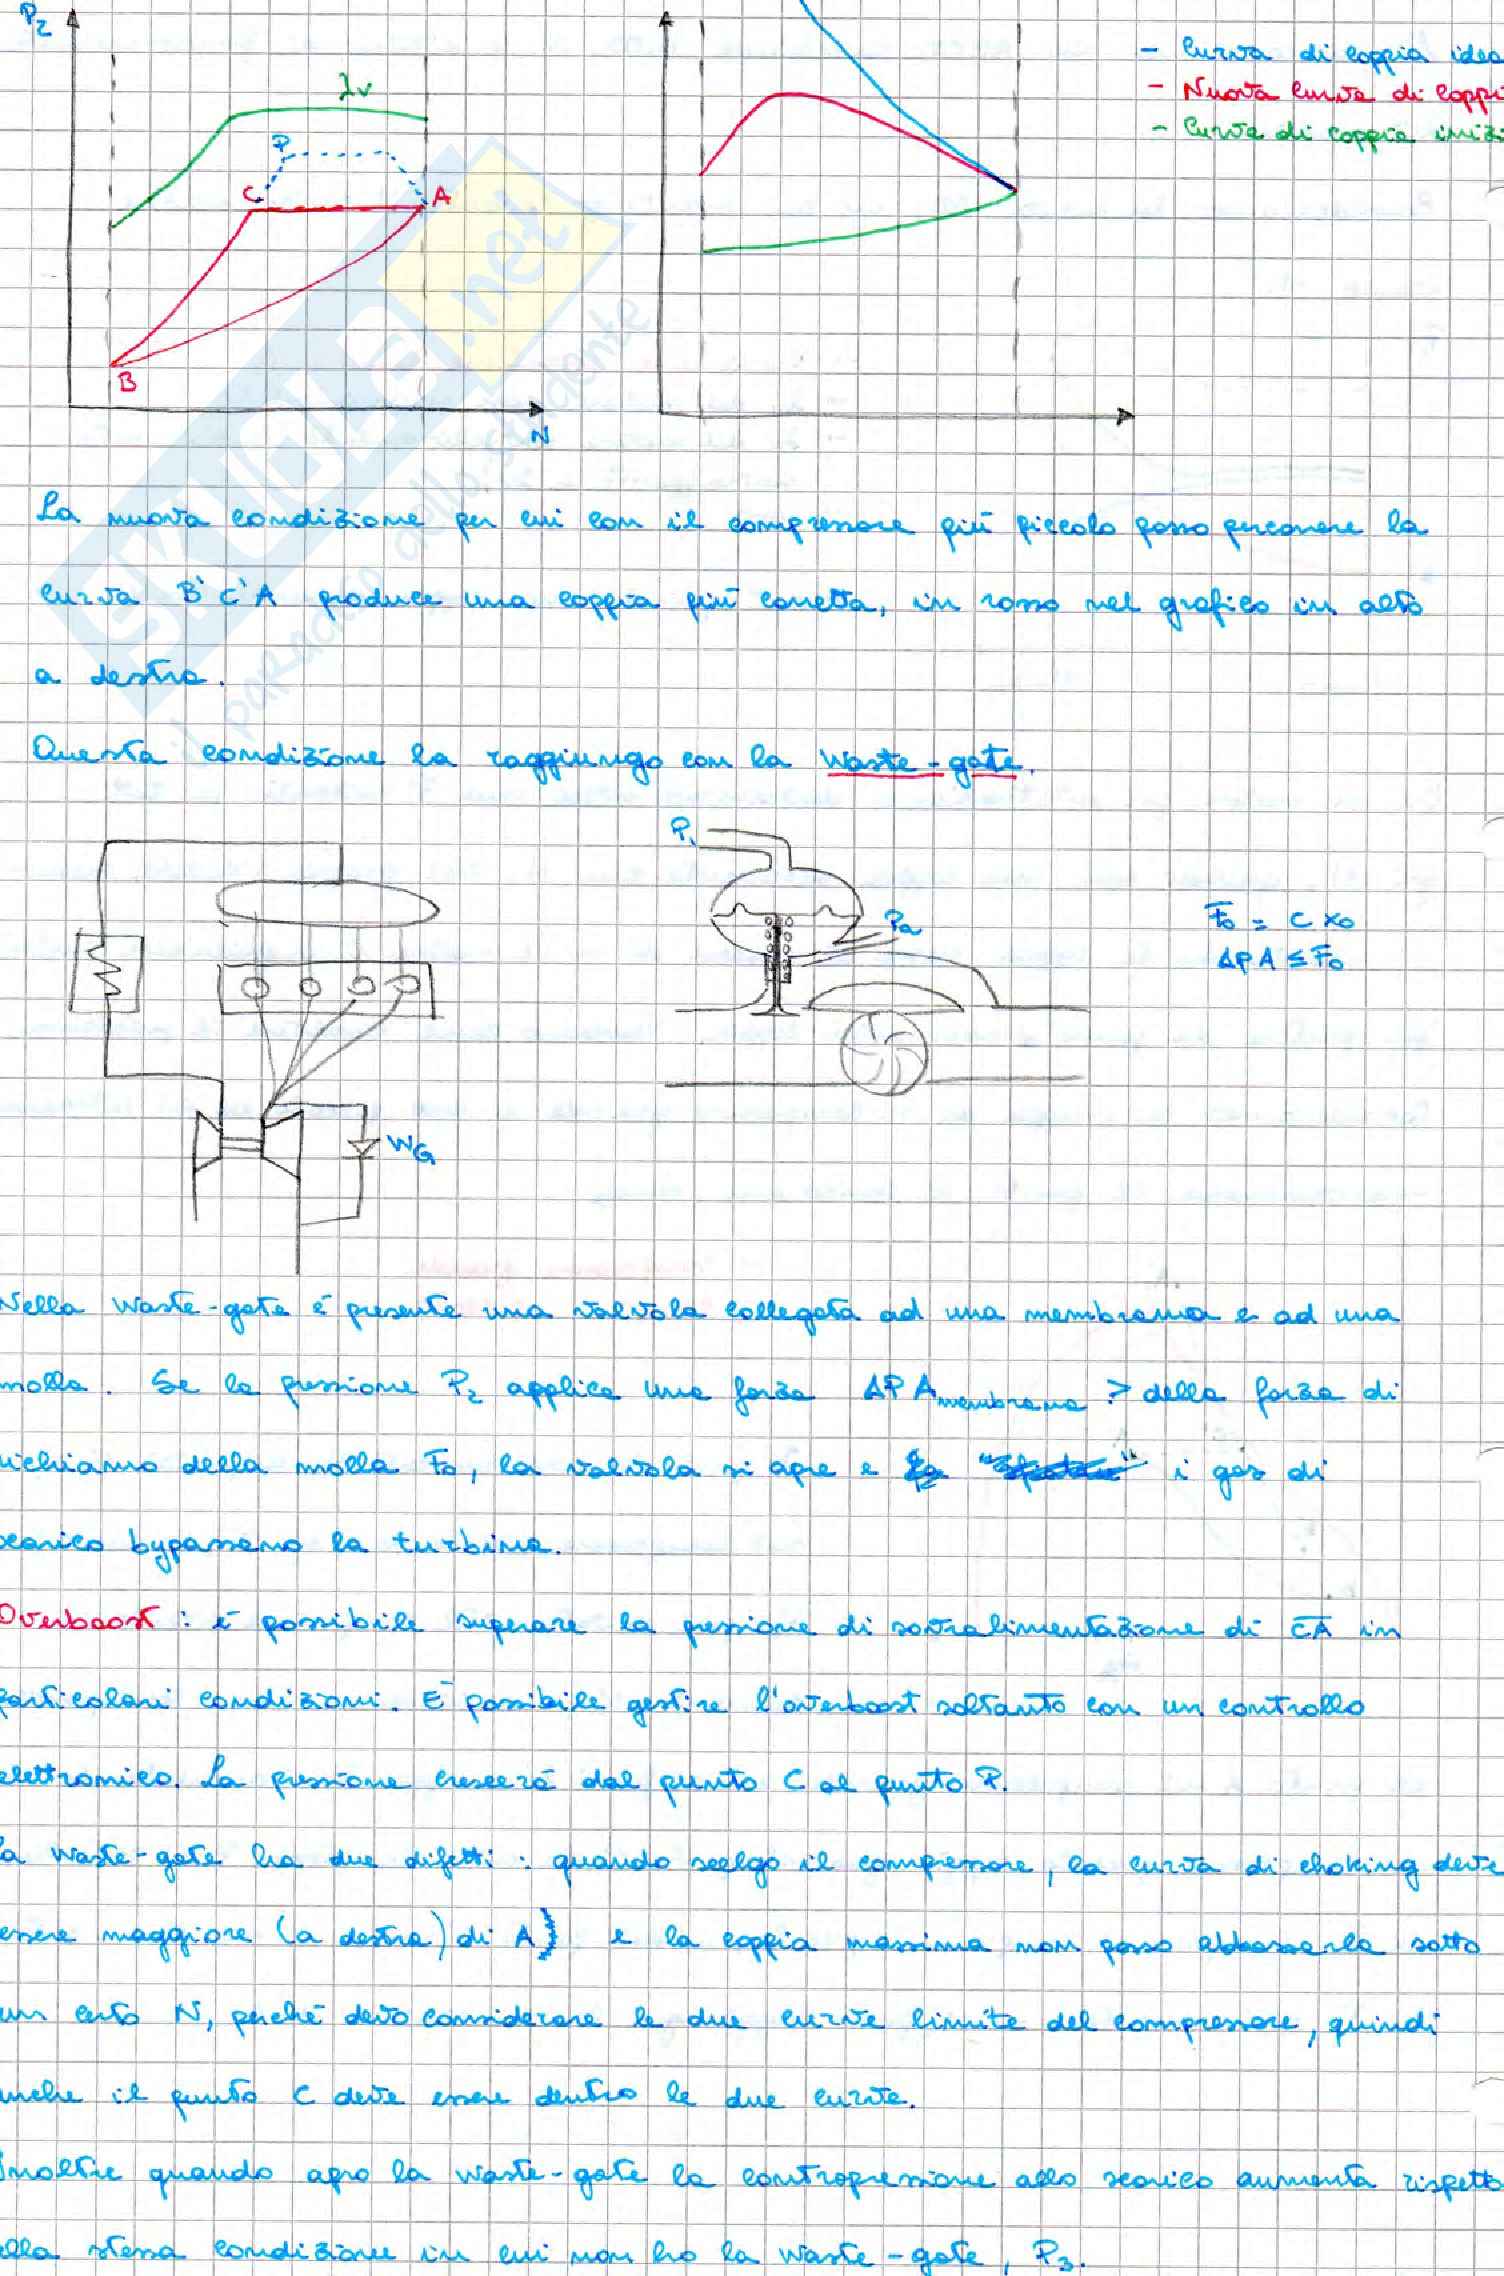 P2
λv
P
C
A
B
N
- Curva di coppia idea
- Nuova curva di coppi
- Curva di coppia inizi
SKUOLA.net
il paradiso dello studente
La nuova condizione per cui con il compressore più piccolo posso percorrere la
curva B'C'A produce una coppia più corretta, in rosso nel grafico in alto
a destra.
Questa condizione la raggiungo con la waste-gate.
P1
Pa
F0 = C x0
ΔP A ≤ F0
WG
Nella waste-gate è presente una valvola collegata ad una membrana e ad una
molla. Se la pressione P2 applica una forza ΔP A membrana > della forza di
richiamo della molla F0, la valvola si apre e i gas di
scarico bypassano la turbina.
Overboost: è possibile superare la pressione di sovralimentazione di CA in
particolari condizioni. È possibile gestire l'overboost soltanto con un controllo
elettronico. La pressione crescerà dal punto C al punto P.
la waste-gate ha due difetti: quando scelgo il compressore, la curva di choking deve
essere maggiore (a destra) di A) e la coppia massima non posso abbassarla sotto
un certo N, perché devo considerare le due curve limite del compressore, quindi
anche il punto C deve essere dentro le due curve.
Inoltre quando apro la waste-gate la contropressione allo scarico aumenta rispetto
alla stessa condizione in cui non ho la waste-gate, P3.